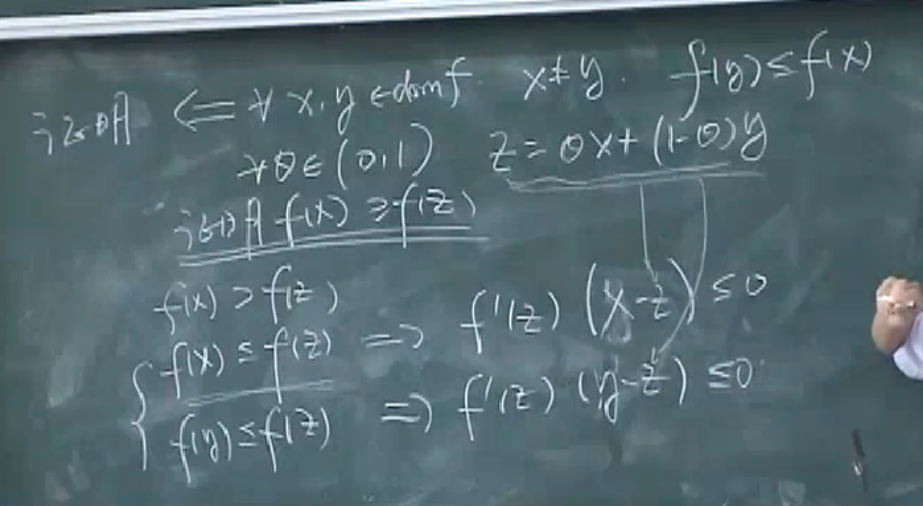 证明 ⇐ ∀ x, y ∈ domf x≠y. f(y)≤f(x)
∀θ∈(0,1) z=θx+(1-θ)y
证明 f(x)≥f(z)
f(x)>f(z)
f(x)≤f(z) => f'(z)(x-z)≤0
f(y)≤f(z) => f'(z)(y-z)≤0